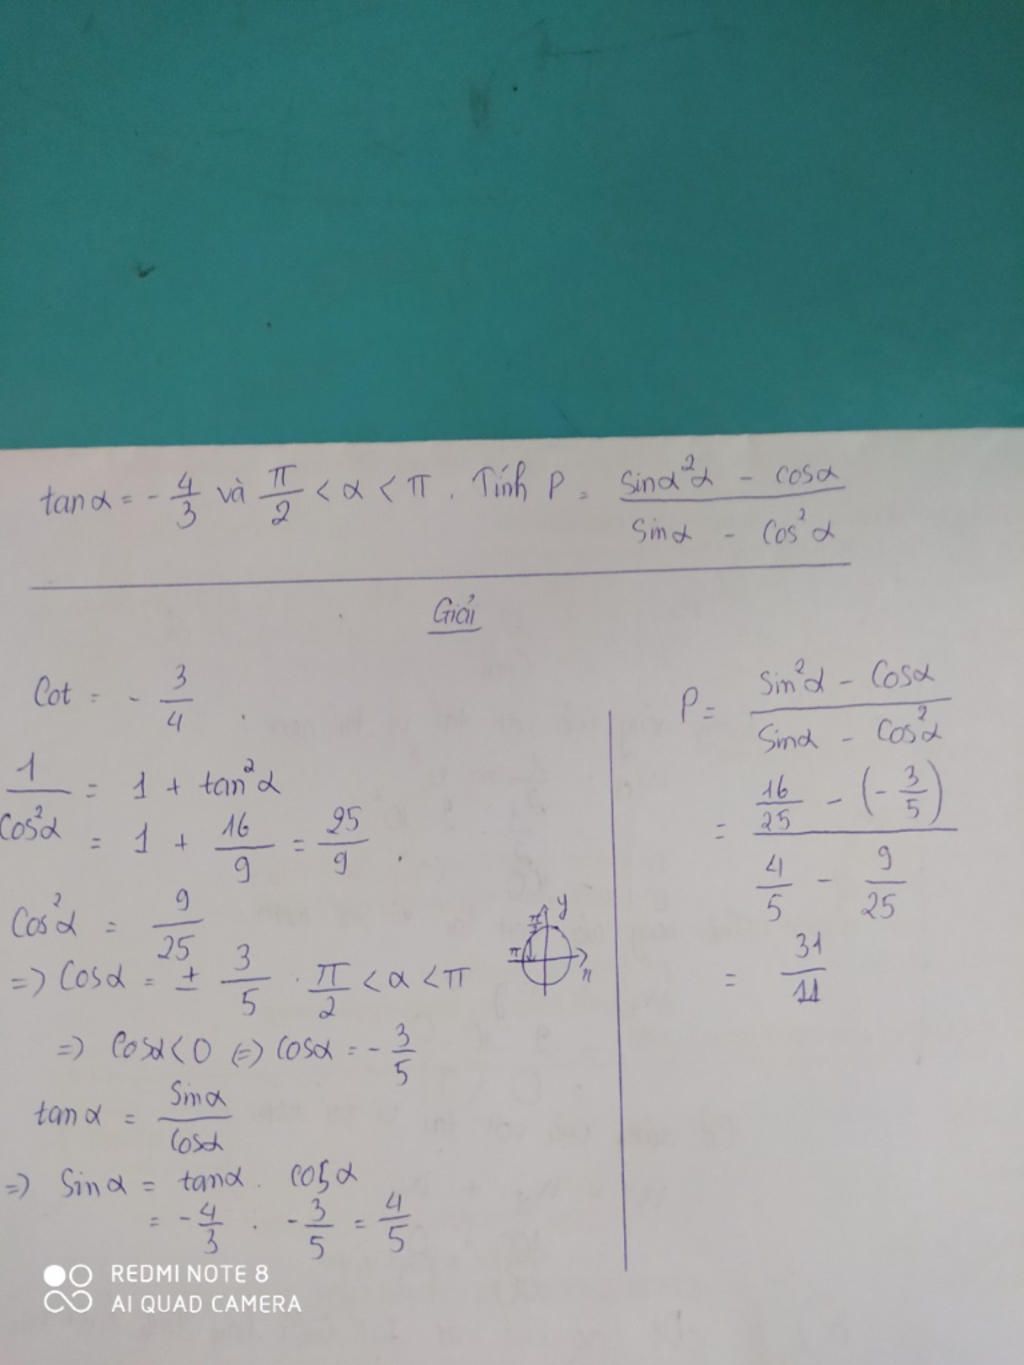 tanα = - 4/3 và π/2 < α < π . Tính P = (Sinα²α - cosα)/(Sinα - Cos²α)
Giải
Cot = - 3/4 .
1/Cos²α = 1 + tan²α
= 1 + 16/9 = 25/9 .
Cos²α = 9/25
=> Cosα = ± 3/5 . π/2 < α < π
=> Cosα < 0 (=) Cosα = - 3/5
tanα = Sinα/Cosα
=> Sinα = tanα . cosα
= - 4/3 . - 3/5 = 4/5
π/2 y
π x
P = (Sin²α - Cosα)/(Sinα - Cos²α)
= (16/25 - (- 3/5))/(4/5 - 9/25)
= 31/11
REDMI NOTE 8
AI QUAD CAMERA